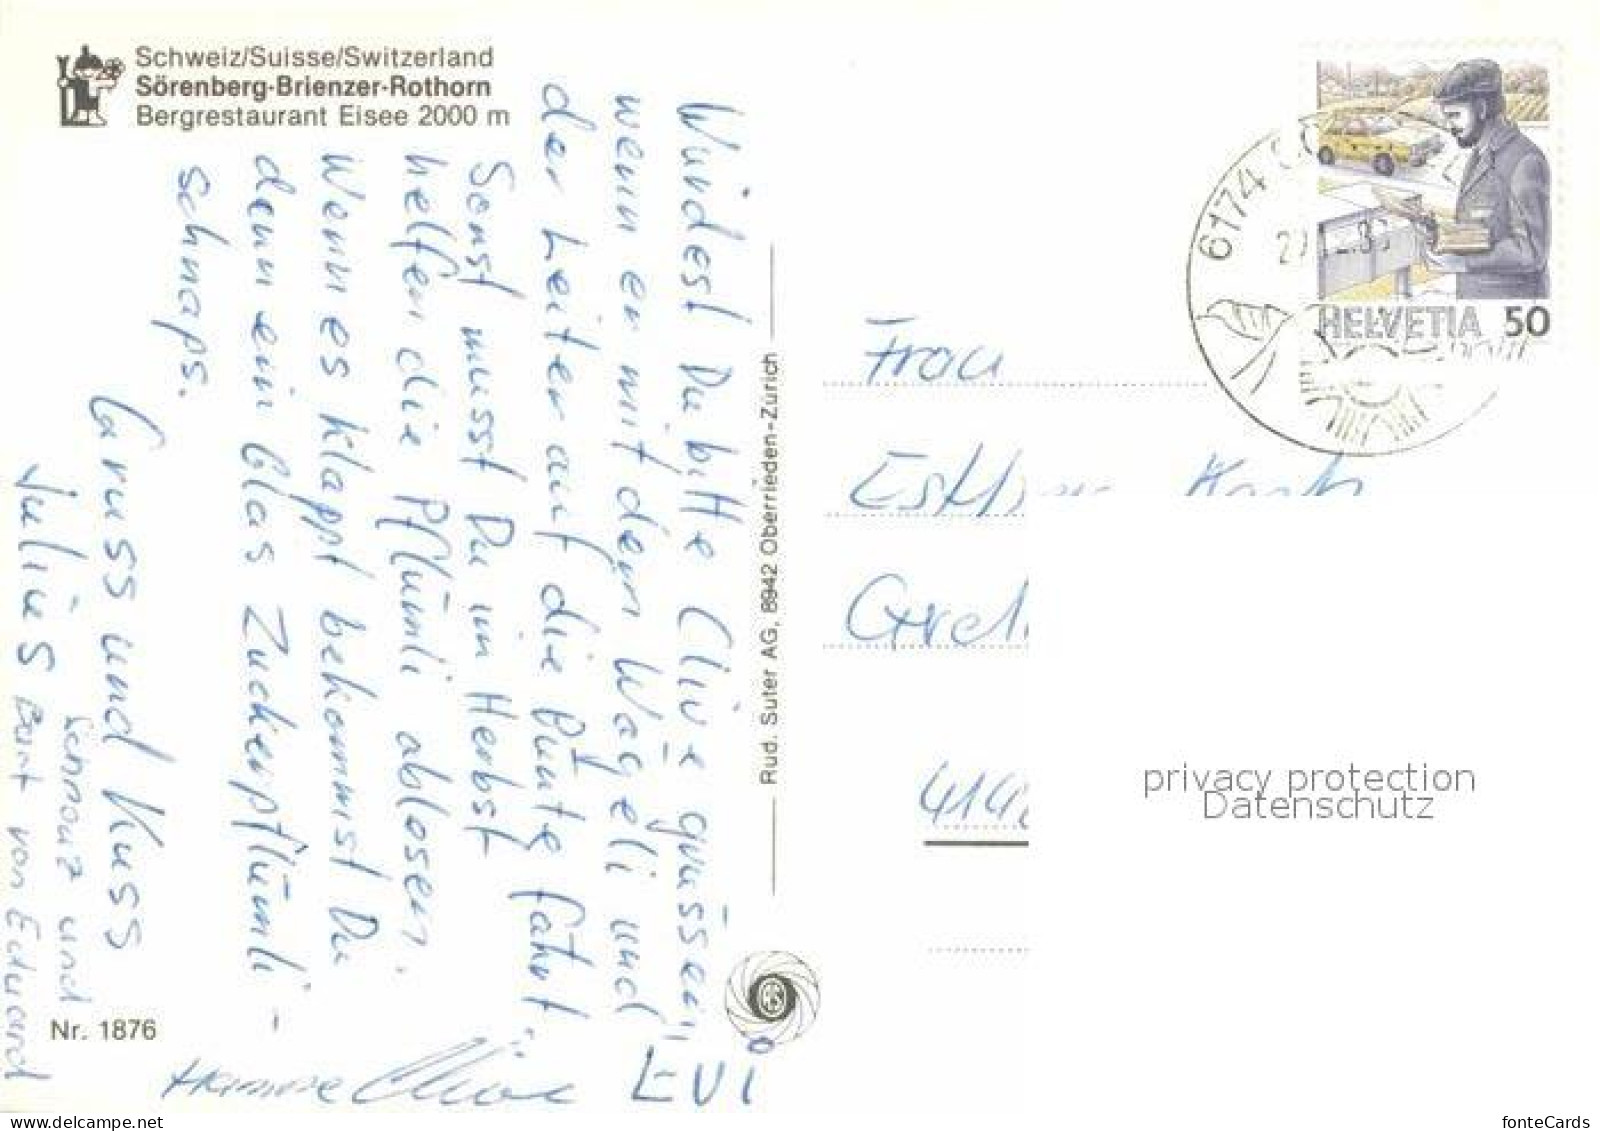 Schweiz/Suisse/Switzerland
Sörenberg-Brienzer-Rothorn
Bergrestaurant Eisee 2000 m
Würdest Du bitte Clive grüssen,
wenn er mit dem Wägeli und
der Leiter auf die Pünte fährt.
Sonst musst Du im Herbst
helfen die Pflümli ablosen.
Wenn es klappt bekommst Du
dann ein Glas Zuckerpflümli-
schnaps.
Gruss und Kuss
Julius
Schnauz und
Bart von Eduard
Hanne
EVI
Nr. 1876
Rud. Suter AG, 8942 Oberrieden-Zürich
HELVETIA 50
6174
Frau
Esther
privacy protection
Datenschutz
fonteCards